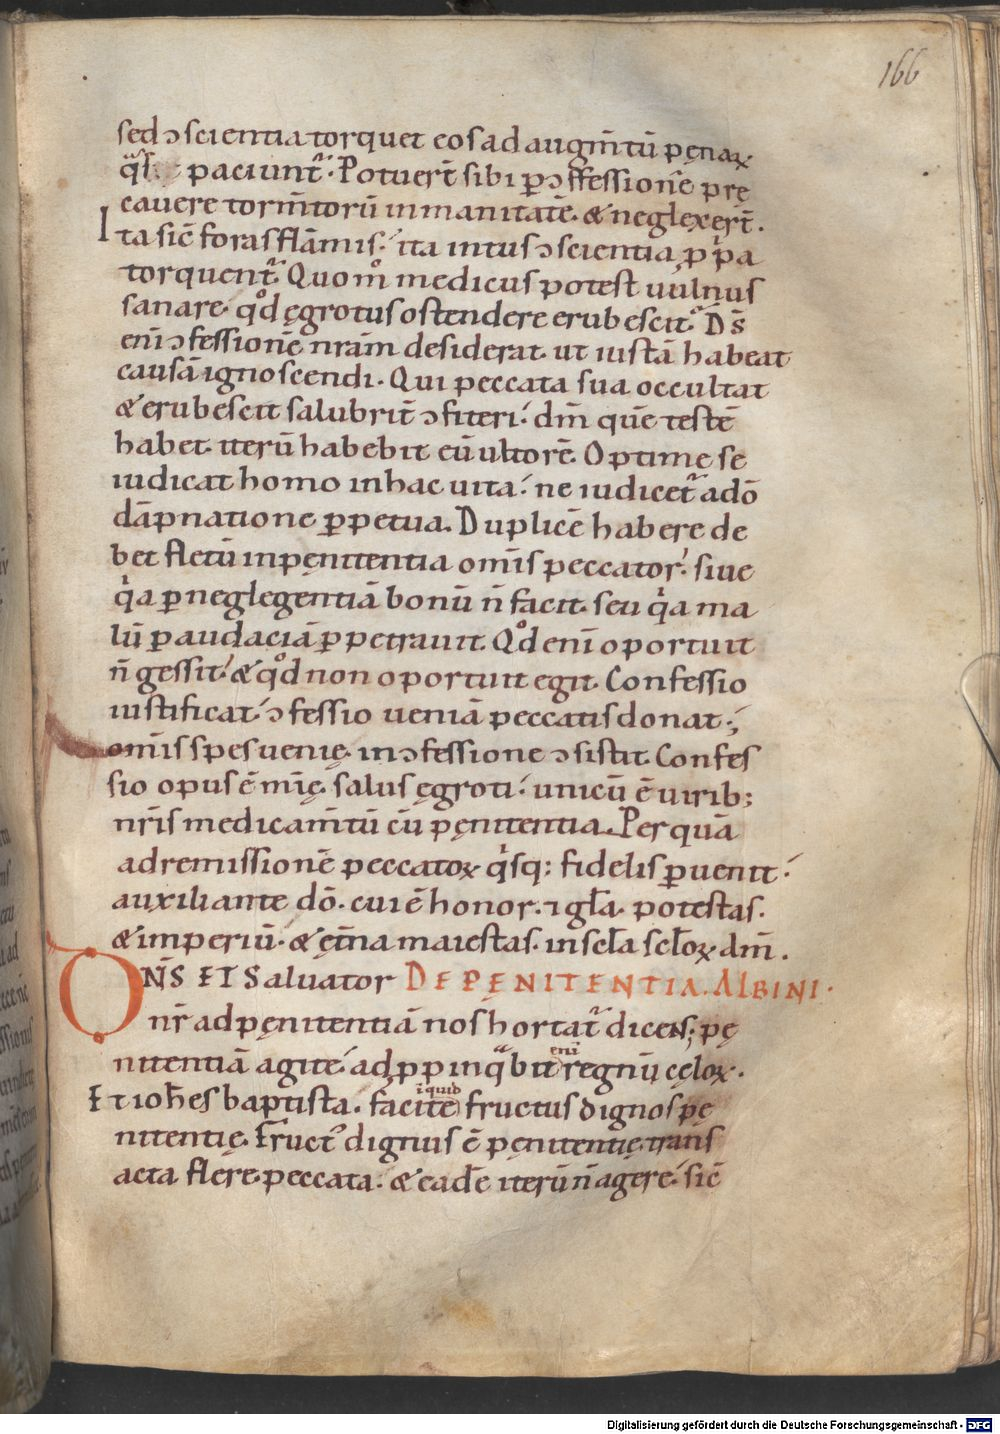 166
sed ɔscientia torquet eos ad augm̄tū pęnaꝝ
paciunt᷑. Potuer̄t sibi ꝑ ɔffessionē prę
cauere torm̄torū inmanitatē. & neglexer̄t.
Ita sic̄ foras flāmis. ita intus ɔscientia ꝑpa
torquent᷑. Quom̊ medicus potest uulnus
sanare. qͦd ęgrotus ostendere erubescit. Dn̄s
eni ɔfessionē nrām desiderat. ut iustā habeat
causā ignoscendi. Qui peccata sua occultat
& erubescit salubrit̄ ɔfiteri. dm̄ quē testē
habet. iterū habebit eū ultorē. Optime se
iudicat homo in hac uita. ne iudicet᷑ a dō
dāpnatione ꝑpetua. Duplicē habere de
bet fletū in pęnitentia om̄is peccator. siue
qͥa ꝑ neglegentiā bonū n̄ facit. seu qͥa ma
lū ꝑ audaciā ꝑpetrauit. Qͦd eni oportuit
n̄ gessit. & qͦd non oportuit egit. Confessio
iustificat. ɔfessio ueniā peccatis donat.;
om̄is spes uenię. in ɔfessione ɔsistit. Confes
sio opus ē mīę. salus ęgroti. unicū ē uirib;
nrīs medicam̄tū cū pęnitentia. Per quā
ad remissionē peccatoꝝ qͥsq; fidelis ꝑuenit.
auxiliante dō. cui ē honor. ⁊ gła. potestas.
& imperiū. & ęt̄na maiestas. in scła scłoꝝ. am̄.
DN̄S ET Saluator DE PĘNITENTIA. ALBINI.
nr̄ ad pęnitentiā nos hortat᷑ dicens; pę
nitentiā agite. adꝑpinqͣbit eni regnū cęloꝝ.
Et ioh̄es baptista. facite inquid fructus dignos pę
nitentię. Fruct᷒ dignus ē pęnitentię. trans
acta flere peccata. & eadē iterū n̄ agere. sic̄
Digitalisierung gefördert durch die Deutsche Forschungsgemeinschaft - DFG